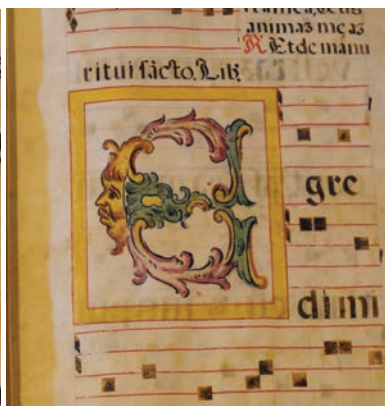 animas meas
℟ Et de manu
ritui sácto. Lib.
E gre
di mi